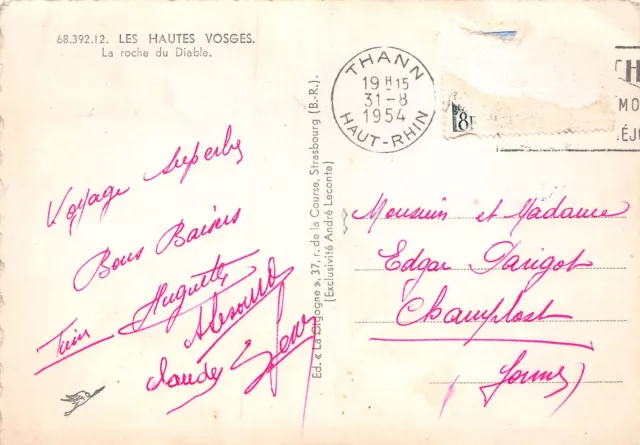 68.392.12. LES HAUTES VOSGES.
La roche du Diable.
THANN
19 H 15
31-8
1954
HAUT-RHIN
8F
MO
ÉJ
Voyage superbe
Bons Baisers
Huguette
Claude
Ed. « La Cigogne », 37, r. de la Course, Strasbourg (B.-R.).
(Exclusivité André Leconte)
Monsieur et Madame
Edgar Parigot
Champlost
(Yonne)